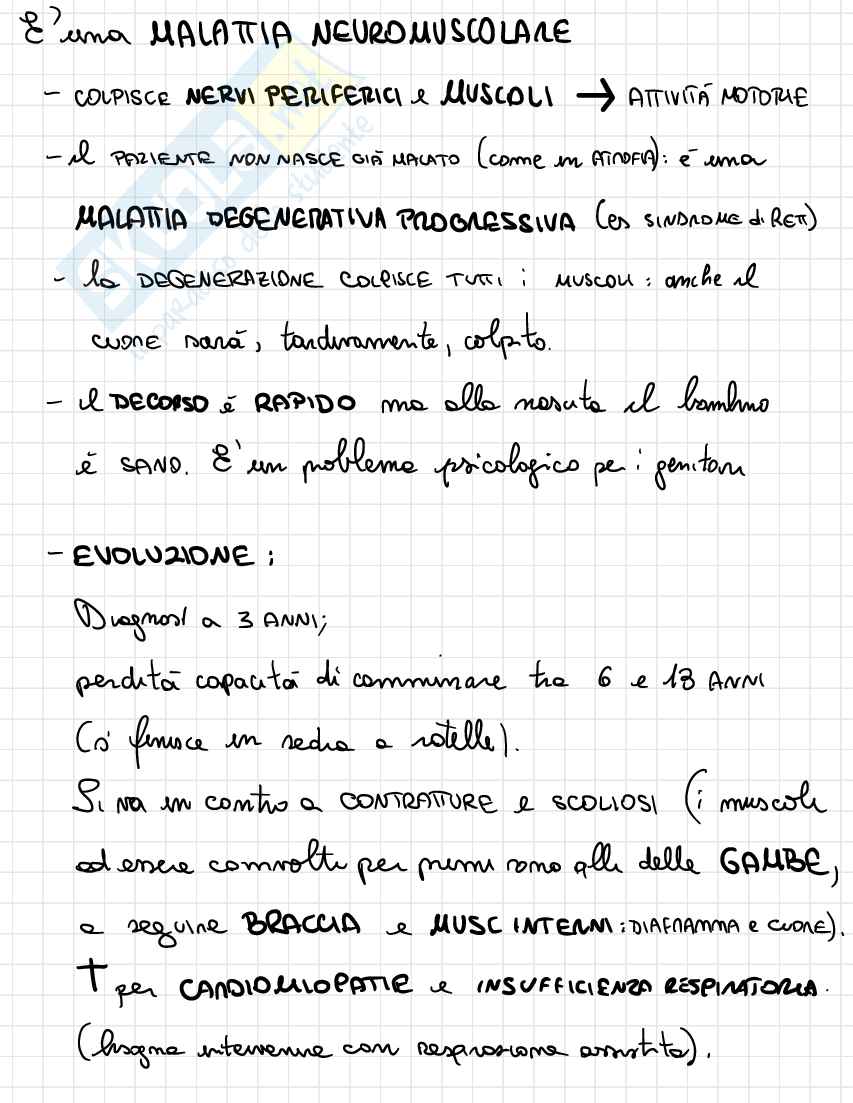 E' una MALATTIA NEUROMUSCOLARE
- COLPISCE NERVI PERIFERICI e MUSCOLI → ATTIVITÀ MOTORIE
- il PAZIENTE NON NASCE GIÀ MALATO (come in ATROFIA): é una
MALATTIA DEGENERATIVA PROGRESSIVA (es SINDROME di RETT)
- la DEGENERAZIONE COLPISCE TUTTI i MUSCOLI: anche il
cuore sarà, tardivamente, colpito.
- il DECORSO é RAPIDO ma alla nascita il bambino
é SANO. E' un problema psicologico per i genitori
- EVOLUZIONE:
Diagnosi a 3 ANNI;
perdità capacità di camminare tra 6 e 13 ANNI
(si finisce in sedia a rotelle).
Si va in contro a CONTRATTURE e SCOLIOSI (i muscoli
ad essere coinvolti per primi sono qlli delle GAMBE,
a seguire BRACCIA e MUSC INTERNI: DIAFRAMMA e CUORE).
† per CARDIOMIOPATIE e INSUFFICIENZA RESPIRATORIA.
(bisogna intervenire con respirazione assistita).
SKUOLA.net
il paradiso dello studente